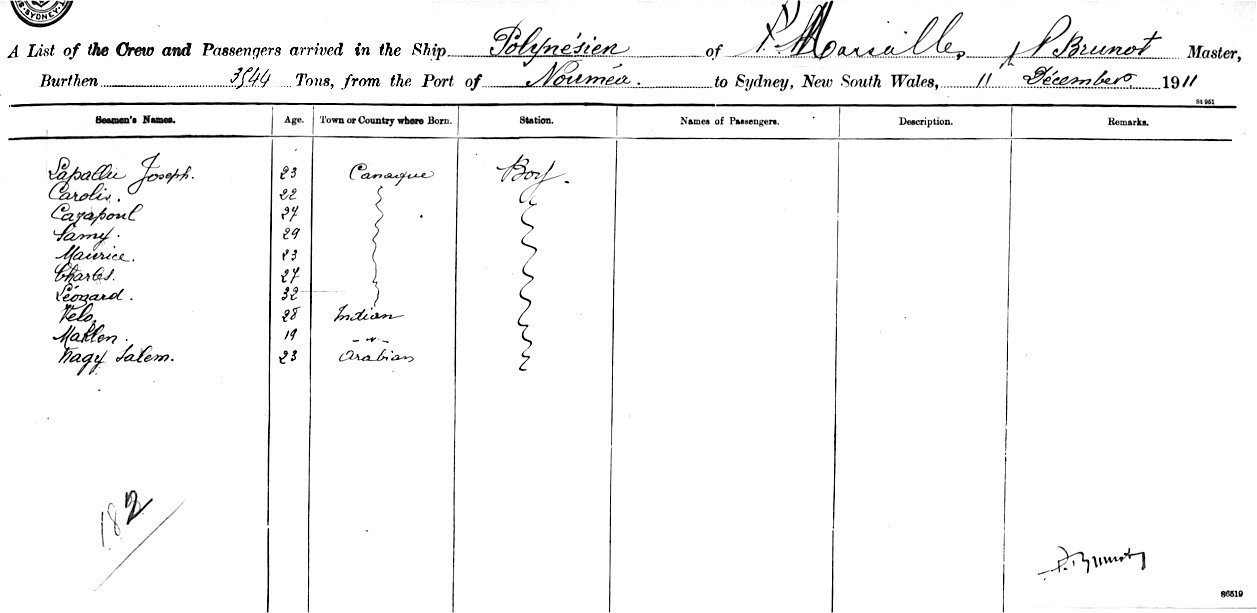 SYDNEY
A List of the Crew and Passengers arrived in the Ship Polynésien of Marseilles, P Brunot Master,
Burthen 3544 Tons, from the Port of Nouméa. to Sydney, New South Wales, 11 Décember 1911
St 951
Seamen's Names. Age. Town or Country where Born. Station. Names of Passengers. Description. Remarks.
Joseph. 23 Canaque Boy.
Carolis. 22
Cazapoul 27
Samy. 29
Maurice. 23
Charles. 27
Léonard. 32
Velo 28 Indian
19 - " -
Nagy Salem. 23 Arabian
182
P. Brunot
86519